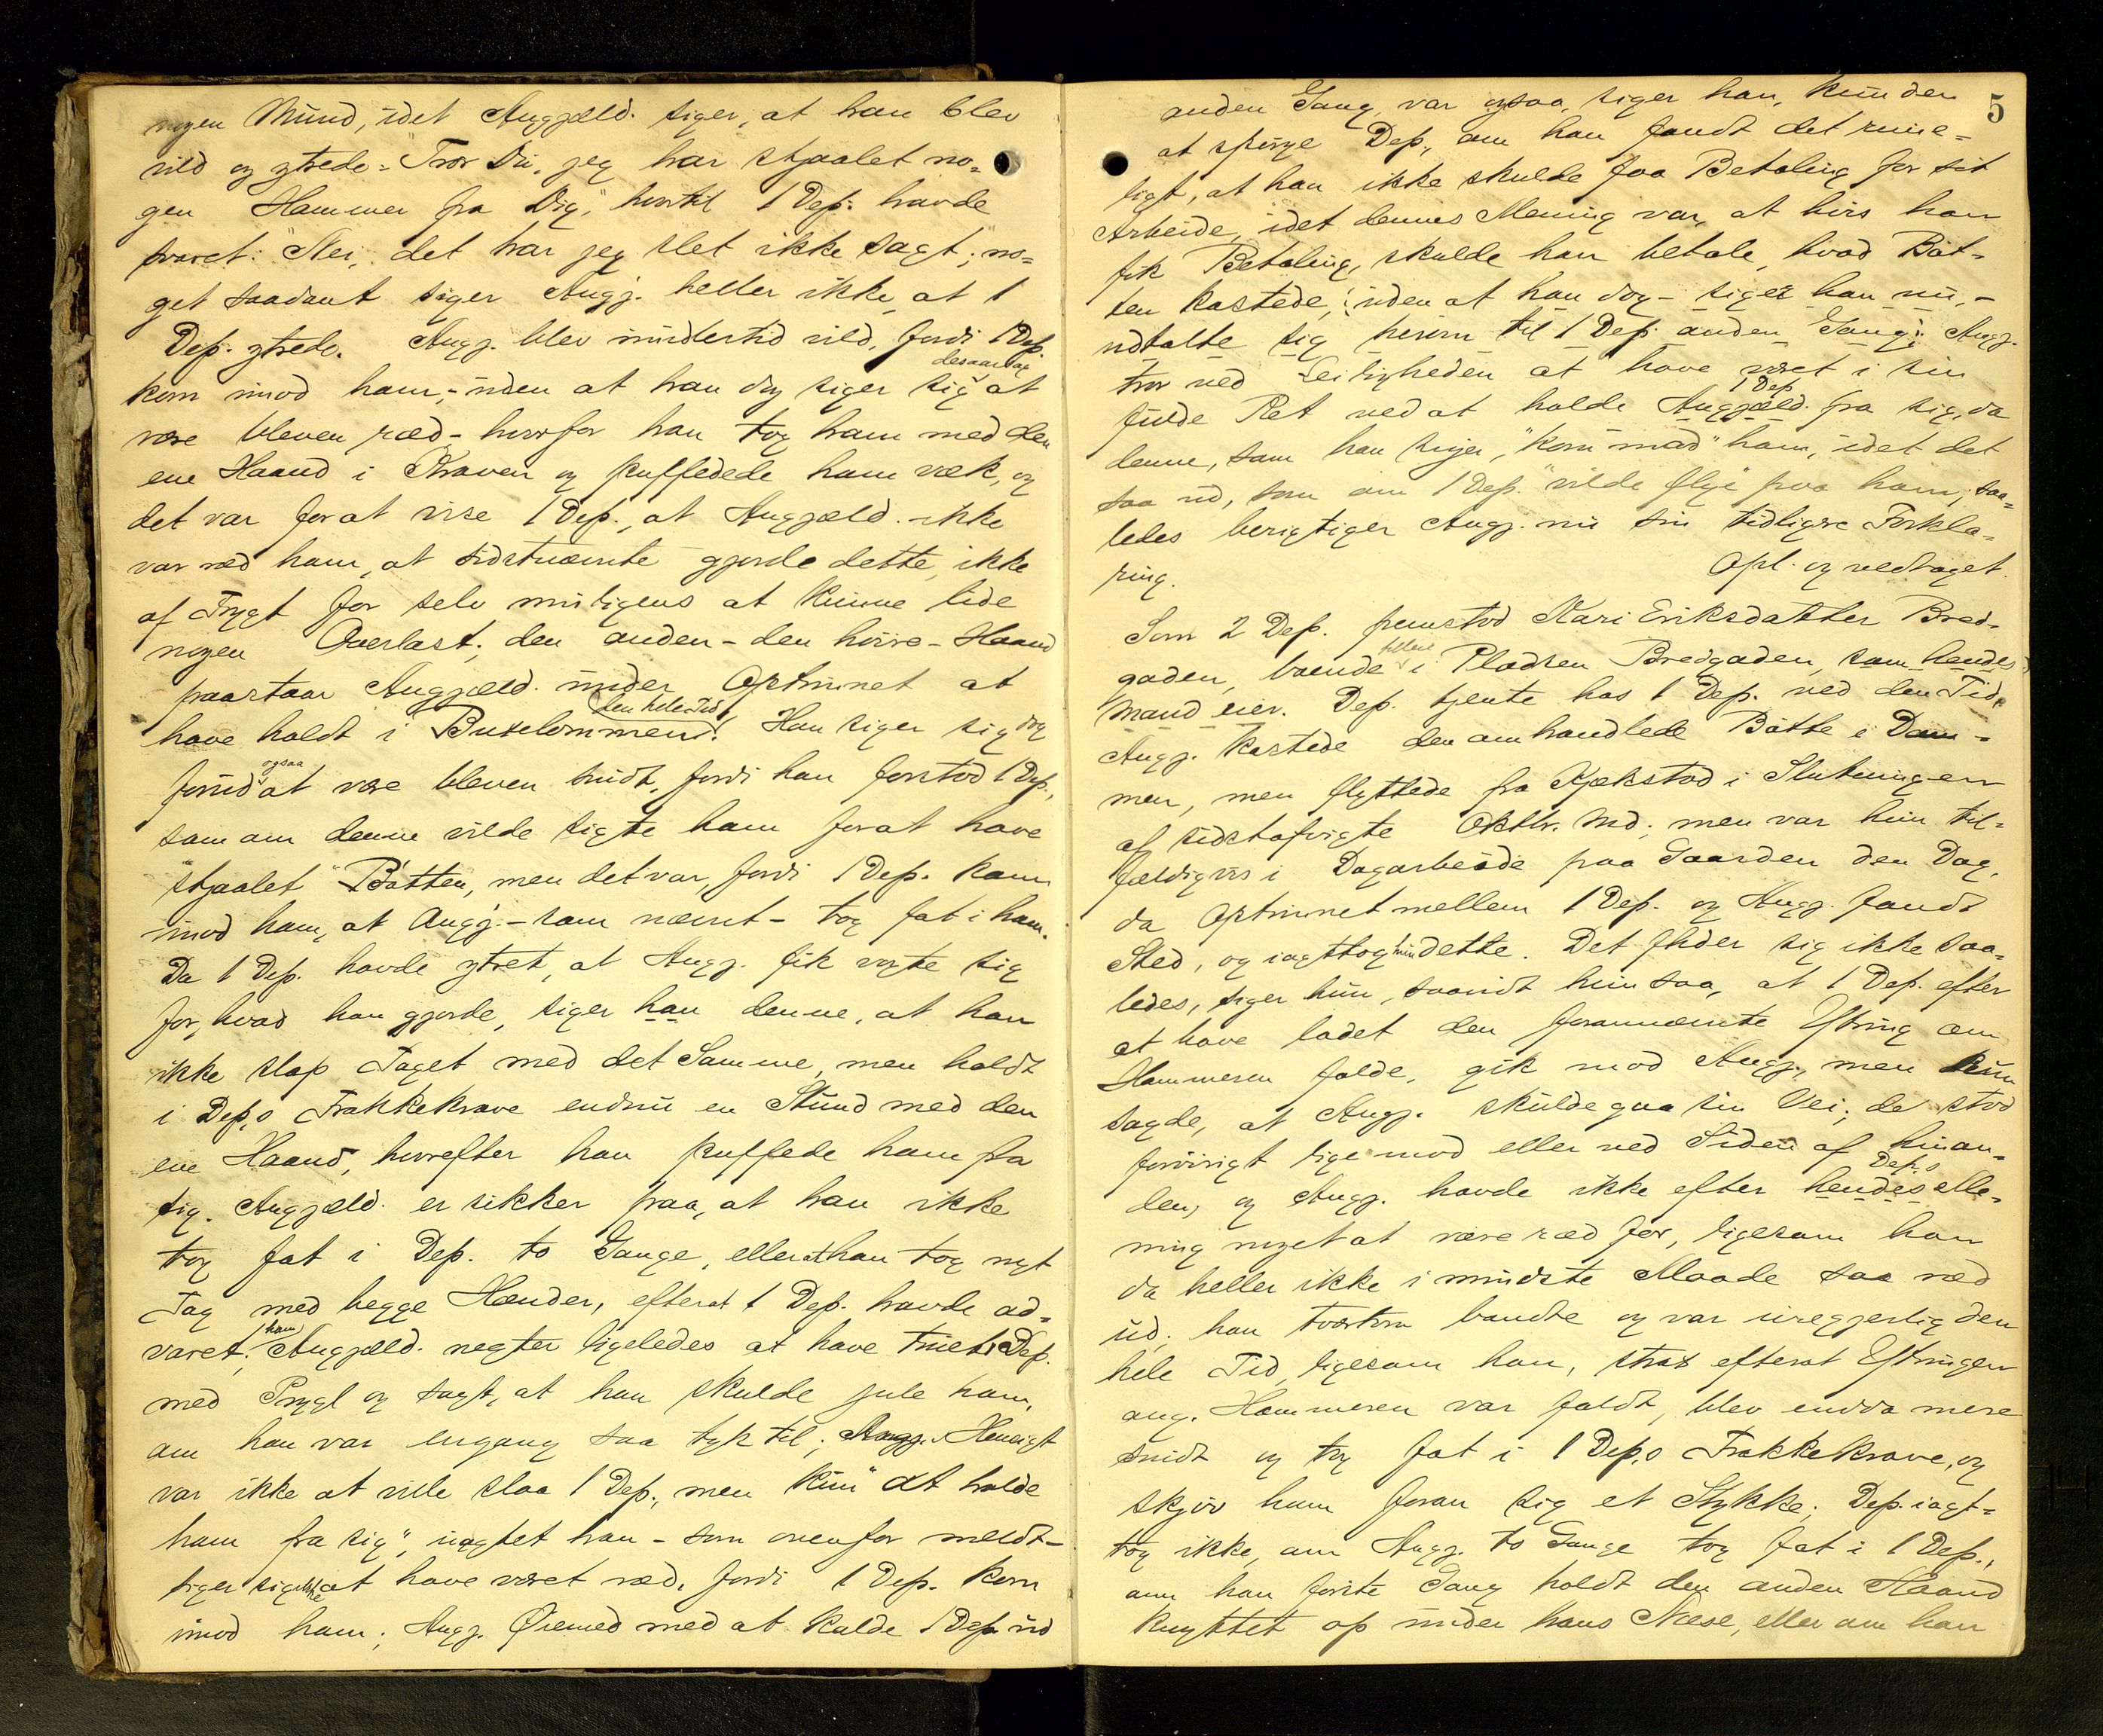 nogen Mund, idet Anggjæld. siger, at han blev
vild og ytrede: "Tror Du, jeg har stjaalet no-
gen Hammer fra Dig," hvortil 1 Dep. havde
svaret: "Nei, det har jeg slet ikke sagt;" no-
get saadant siger Angj. heller ikke, at 1
Dep. ytrede. Angj. blev imidlertid vild, fordi 1 Dep.
kom imod ham, - uden at han dog siger sig desaarsag at
være bleven ræd - hvorfor han tog ham med den
ene Haand i Kraven og puffedede ham væk, og
det var for at vise 1 Dep., at Anggjæld. ikke
var ræd ham, at sidstnævnte gjorde dette, ikke
af Frygt for selv muligens at kunne lide
nogen Overlast; den anden - den høire - Haand
paastaar Anggjæld. under Optrinnet at
have holdt i Buxelommen den hele Tid. Han siger sig dog
forud ogsaa at være bleven sindt, fordi han forstod 1 Dep.,
som om denne vilde sigte ham for at have
"stjaalet" Bøtten, men det var, fordi 1 Dep. kom
imod ham, at Angj. - som nævnt - tog fat i ham.
Da 1 Dep. havde ytret, at Angj. fik vogte sig
for, hvad han gjorde, siger han denne, at han
ikke slap Taget med det Samme, men holdt
i Dep.s Frakkekrave endnu en Stund med den
ene Haand, hvorefter han puffede ham fra
sig. Anggjæld. er sikker paa, at han ikke
tog fat i Dep. to Gange, eller at han tog nyt
Tag med begge Hænder, efterat 1 Dep. havde ad-
varet ham; Anggjæld. negter ligeledes at have truet 1 Dep.
med Prygl og sagt, at han skulde jule ham,
om han var engang saa tyk til; Angj.s Hensigt
var ikke at ville slaa 1 Dep., men kun "at holde
ham fra sig", uagtet han - som ovenfor meldt -
siger sig ikke at have været ræd, fordi 1 Dep. kom
imod ham; Angj. Øiemed med at kalde 1 Dep. ud
5
anden Gang var ogsaa, siger han, kun den
at spørge Dep., om han fandt det rime-
ligt, at han ikke skulde faa Betaling for sit
Arbeide, idet dennes Mening var, at hvis han
fik Betaling, skulde han betale, hvad Bøt-
ten kostede, uden at han dog - siger han nu, -
udtalte sig herom til 1 Dep. anden Gang; Angj.
tror ved Leiligheden at have været i sin
fulde Ret ved at holde 1 Dep. fra sig, da
denne, som han siger, "kom mod" ham, idet det
saa ud, som om 1 Dep. "vilde flyge" paa ham; saa-
ledes berigtiger Angj. nu sin tidligere Forkla-
ring.
Opl. og vedtaget.
Som 2 Dep. fremstod Kari Eriksdatter Bred-
gaden, boende tilleie i Pladsen Bredgaden, som hendes
Mand eier. Dep. tjente hos 1 Dep. ved den Tid,
Angj. kastede den omhandlede Bøtte i Dam-
men, men flyttede fra Kjekstad i Slutningen
af sidstafvigte Oktbr. Md.; men var hun til-
fældigvis i Dagarbeide paa Gaarden den Dag,
da Optrinnet mellem 1 Dep. og Angj. fandt
Sted, og iagttog hun dette. Det forholder sig ikke saa-
ledes, siger hun, saavidt hun saa, at 1 Dep. efter
at have ladet den forannævnte Ytring om
Hammeren falde, gik mod Angj., men kun
sagde, at Angj. skulde gaa sin Vei; de stod
forøvrigt lige mod eller ved Siden af hinan-
den, og Angj. havde ikke efter Dep.s Me-
ning noget at være ræd for, ligesom han
da heller ikke i mindste Maade saa ræd
ud; han tvertom bandte og var uregjerlig den
hele Tid, ligesom han, strax efterat Ytringen
ang. Hammeren var faldt, blev endda mere
sindt og tog fat i 1 Dep.s Frakkekrave, og
skjøv ham foran sig et Stykke; Dep. iagt-
tog ikke, om Angj. to Gange tog fat i 1 Dep.,
om han første Gang holdt den anden Haand
knyttet op under hans Næse, eller om han